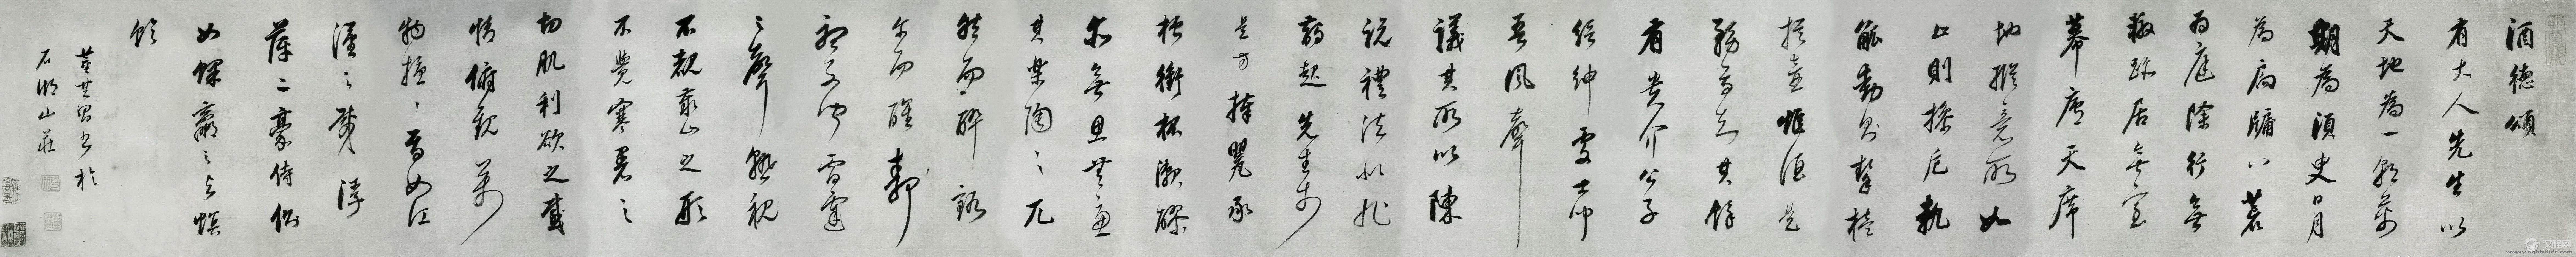 酒德頌
有大人先生以
天地為一朝萬
期為須臾日月
為扃牖八荒
為庭除行無
轍跡居無室
幕廬天席
地縱意所如
止則操卮執
觚動則挈榼
提壺惟酒是
務焉知其餘
有貴介公子
縉紳處士聞
吾風聲
議其所以陳
說禮法是非
鋒起先生於
是方捧甖承
槽銜杯漱醪
尒無思無慮
其樂陶々兀
然而醉豁
尒而醒靜
聽不聞雷霆
之聲熟視
不覩泰山之形
不覺寒暑之
切肌利欲之感
情俯觀萬
物擾々焉如江
漢之載浮
萍二豪侍側
如蜾蠃之與螟
蛉
董其昌書於
石湖山莊
www.yingbishufa.com